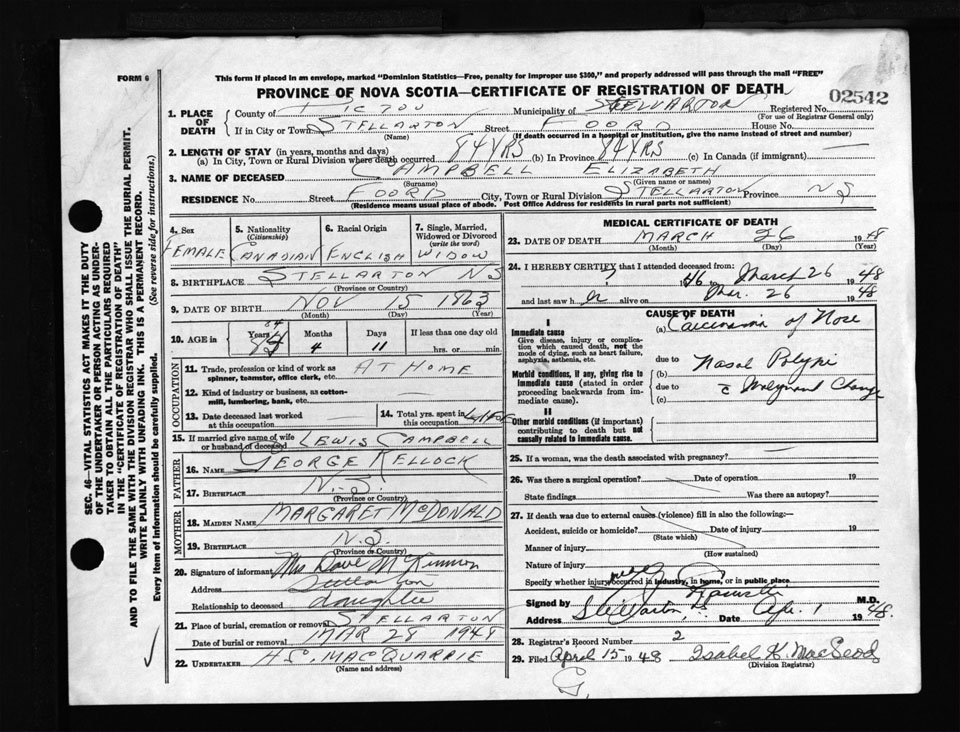 FORM 6
This form if placed in an envelope, marked "Dominion Statistics—Free, penalty for improper use $300," and properly addressed will pass through the mail "FREE"
PROVINCE OF NOVA SCOTIA—CERTIFICATE OF REGISTRATION OF DEATH
02542
1. PLACE OF DEATH
County of PICTOU Municipality of STELLARTON Registered No.
(For use of Registrar General only)
If in City or Town STELLARTON Street FOORD House No.
(Name) (If death occurred in a hospital or institution, give the name instead of street and number)
2. LENGTH OF STAY (in years, months and days)
(a) In City, Town or Rural Division where death occurred 84 YRS (b) In Province 84 YRS (c) In Canada (if immigrant) —
3. NAME OF DECEASED CAMPBELL ELIZABETH
(Surname) (Given name or names)
RESIDENCE No. Street FOORD City, Town or Rural Division STELLARTON Province NS
(Residence means usual place of abode. Post Office Address for residents in rural parts not sufficient)
4. Sex 5. Nationality (Citizenship) 6. Racial Origin 7. Single, Married, Widowed or Divorced (write the word)
FEMALE CANADIAN ENGLISH WIDOW
8. BIRTHPLACE STELLARTON NS
(Province or Country)
9. DATE OF BIRTH NOV 15 1863
(Month) (Day) (Year)
10. AGE in Years Months Days If less than one day old
84 4 11 hrs. or min.
OCCUPATION
11. Trade, profession or kind of work as spinner, teamster, office clerk, etc. AT HOME
12. Kind of industry or business, as cotton-mill, lumbering, bank, etc.
13. Date deceased last worked at this occupation
14. Total yrs. spent in this occupation
15. If married give name of wife or husband of deceased LEWIS CAMPBELL
FATHER
16. NAME GEORGE KELLOCK
17. BIRTHPLACE N.S.
(Province or Country)
MOTHER
18. MAIDEN NAME MARGARET McDONALD
19. BIRTHPLACE N.S.
(Province or Country)
20. Signature of informant Mrs Dave McKinnon
Address Stellarton
Relationship to deceased daughter
21. Place of burial, cremation or removal STELLARTON
Date of burial or removal MAR 28 1948
22. UNDERTAKER H.S. MACQUARRIE
(Name and address)
MEDICAL CERTIFICATE OF DEATH
23. DATE OF DEATH MARCH 26 1948
(Month) (Day) (Year)
24. I HEREBY CERTIFY that I attended deceased from:
46 to March 26 1948
and last saw her alive on Mar. 26 1948
CAUSE OF DEATH
I
Immediate cause
Give disease, injury or complication which caused death, not the mode of dying, such as heart failure, asphyxia, asthenia, etc.
(a) Carcinoma of Nose
due to
Morbid conditions, if any, giving rise to immediate cause (stated in order proceeding backwards from immediate cause).
(b) Nasal Polypi
due to c̄ Malignant Change
(c)
II
Other morbid conditions (if important) contributing to death but not causally related to immediate cause.
25. If a woman, was the death associated with pregnancy? —
26. Was there a surgical operation? Date of operation 19
State findings Was there an autopsy?
27. If death was due to external causes (violence) fill in also the following:—
Accident, suicide or homicide? Date of injury 19
(State which)
Manner of injury
(How sustained)
Nature of injury
Specify whether injury occurred in industry, in home, or in public place
Signed by M.D.
Address Stellarton Date Apr. 1 1948.
28. Registrar's Record Number 2
29. Filed April 15 1948 Isabel K. MacLeod
(Division Registrar)
SEC. 46—VITAL STATISTICS ACT MAKES IT THE DUTY
OF THE UNDERTAKER OR PERSON ACTING AS UNDERTAKER TO OBTAIN ALL THE PARTICULARS REQUIRED
IN THE "CERTIFICATE OF REGISTRATION OF DEATH"
AND TO FILE THE SAME WITH THE DIVISION REGISTRAR WHO SHALL ISSUE THE BURIAL PERMIT.
WRITE PLAINLY WITH UNFADING INK. THIS IS A PERMANENT RECORD.
Every item of information should be carefully supplied. (See reverse side for instructions.)